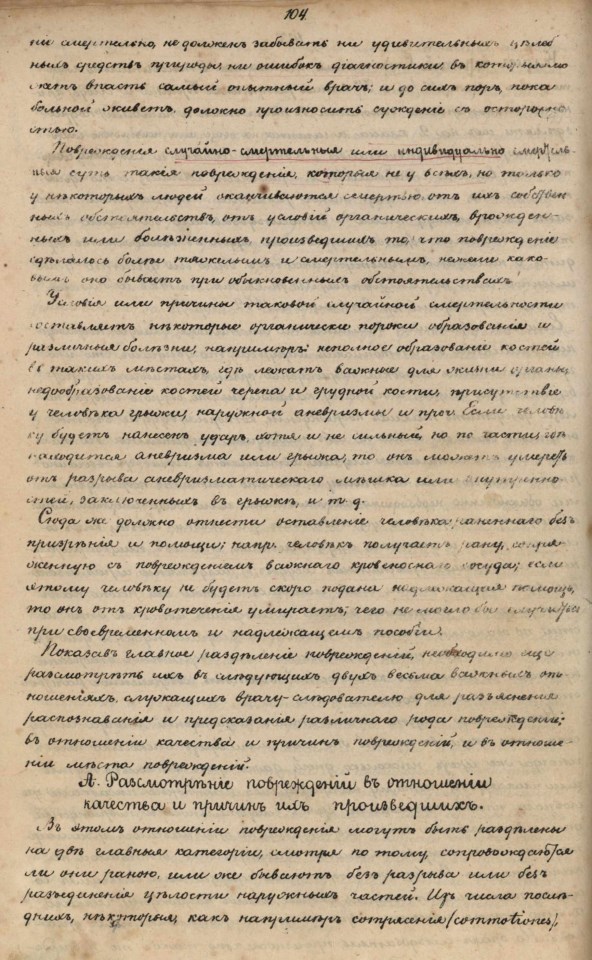 104.
ни смертельно, не должен забывать ни удивительныхъ цѣлеб
ныхъ средствъ природы, ни ошибокъ діагностики, въ которыя мо
жетъ впасть самый опытный врачъ; и до сихъ поръ, пока
больной живетъ должно произносить сужденіе съ осторожно
стью.
Поврежденія случайно-смертельныя или индивидуально смертель-
ныя суть такія поврежденія, которыя не у всѣхъ, но только
у нѣкоторыхъ людей оканчиваются смертью отъ ихъ собствен
ныхъ обстоятельствъ, отъ условій органическихъ, врожден-
ныхъ или болѣзненныхъ, произведшихъ то, что поврежденіе
сдѣлалось болѣе тяжелымъ и смертельнымъ, нежели како-
вымъ оно бываетъ при обыкновенныхъ обстоятельствахъ.
Условія или причины таковой случайной смертельности
составляетъ нѣкоторые органическіе пороки образованія и
различныя болѣзни, напримѣръ: неполное образованіе костей
въ такихъ мѣстахъ, гдѣ лежатъ важные для жизни органы,
недообразованіе костей черепа и грудной кости, присутствіе
у человѣка грыжи, наружной аневризмы и проч. Если человѣ
ку будетъ нанесенъ ударъ, хотя и не сильный, но по части, гдѣ
находится аневризма или грыжа, то онъ можетъ умереть
отъ разрыва аневризматическаго мѣшка или внутренно
стей, заключенныхъ въ грыжѣ, и т. д.
Сюда же должно отнести оставленіе человѣка раненнаго безъ
призрѣнія и помощи; напр. человѣкъ получаетъ рану, сопря
женную съ поврежденіемъ важнаго кровеноснаго сосуда; если
этому человѣку не будетъ скоро подана надлежащая помощь,
то онъ отъ кровотеченія умираетъ; чего не могло бы случиться
при своевременномъ и надлежащемъ пособіи.
Показавъ главное раздѣленіе поврежденій, необходимо еще
разсмотрѣть ихъ въ слѣдующихъ двухъ весьма важныхъ от
ношеніяхъ, служащихъ врачу-слѣдователю для разъясненія
распознаванія и предсказанія различнаго рода поврежденій;
въ отношеніи качества и причинъ поврежденій, и въ отноше-
ніи мѣста поврежденій.
А. Разсмотрѣніе поврежденій въ отношеніи
качества и причинъ ихъ произведшихъ.
Въ этомъ отношеніи поврежденія могутъ быть раздѣлены
на двѣ главныя категоріи, смотря по тому, сопровождаются
ли они раною, или же бываютъ безъ разрыва или безъ
разъединенія цѣлости наружныхъ частей. Изъ числа послѣ-
днихъ, нѣкоторыя, какъ напримѣръ сотрясенія (commotiones),